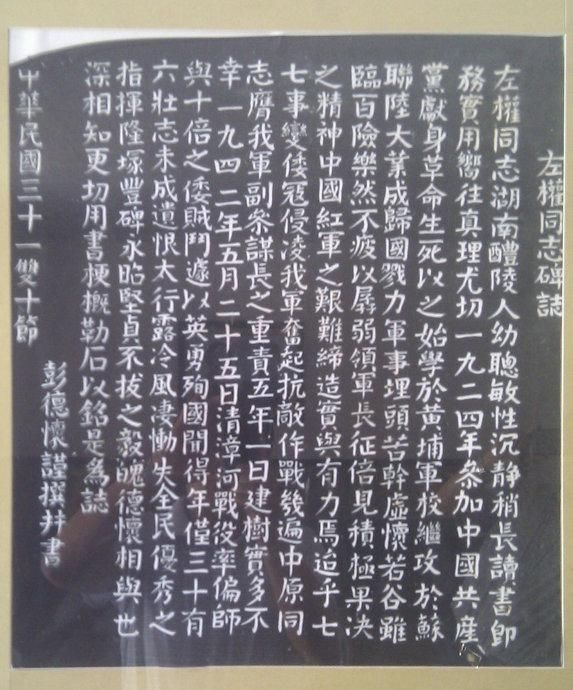 左權同志碑誌
左權同志湖南醴陵人幼聰敏性沉静稍長讀書卽
務實用嚮往真理尤切一九二四年參加中國共產
黨獻身革命生死以之始學於黃埔軍校繼攻於蘇
聯陸大業成歸國戮力軍事埋頭苦幹虛懷若谷雖
臨百險樂然不疲以孱弱領軍長征倍見積極果决
之精神中國紅軍之艱難締造實與有力焉迨乎七
七事變倭寇侵凌我軍奮起抗敵作戰幾遍中原同
志膺我軍副參謀長之重責五年一日建樹實多不
幸一九四二年五月二十五日清漳河戰役率偏師
與十倍之倭賊鬥遽以英勇殉國聞得年僅三十有
六壯志未成遺恨太行露冷風淒慟失全民優秀之
指揮隆塚豐碑永昭堅貞不拔之毅魄德懷相與也
深相知更切用書梗概勒石以銘是為誌
彭德懷謹撰并書
中華民國三十一雙十節